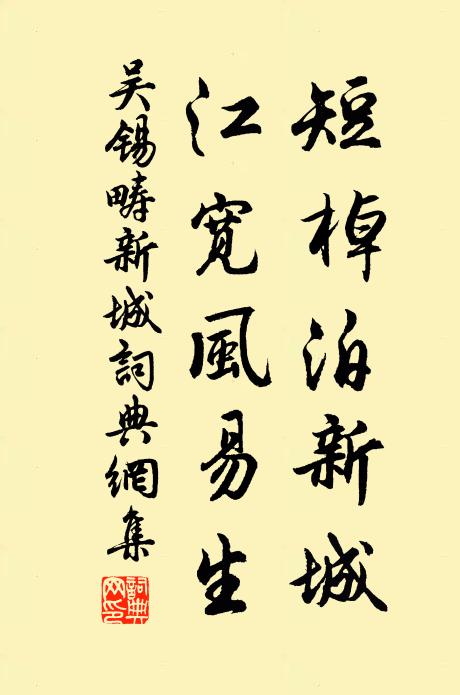 短棹泊新城
江寬風易生
吴锡疇新城詞典網集
詞典网印